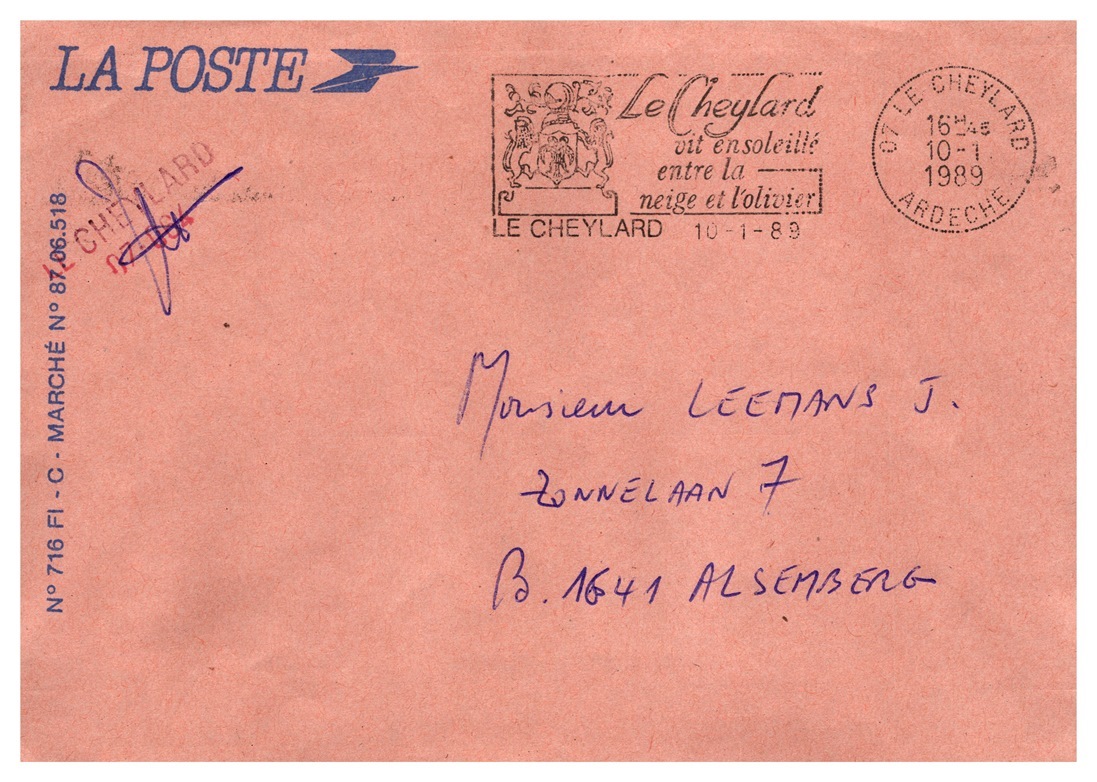 LA POSTE
Le Cheylard
vit ensoleillé
entre la
neige et l'olivier
LE CHEYLARD 10-1-89
07 LE CHEYLARD
16H45
10-1
1989
ARDECHE
LE CHEYLARD
N° 716 FI - C - MARCHÉ N° 87.06.518
Monsieur LEEMANS J.
ZONNELAAN 7
B. 1641 ALSEMBERG